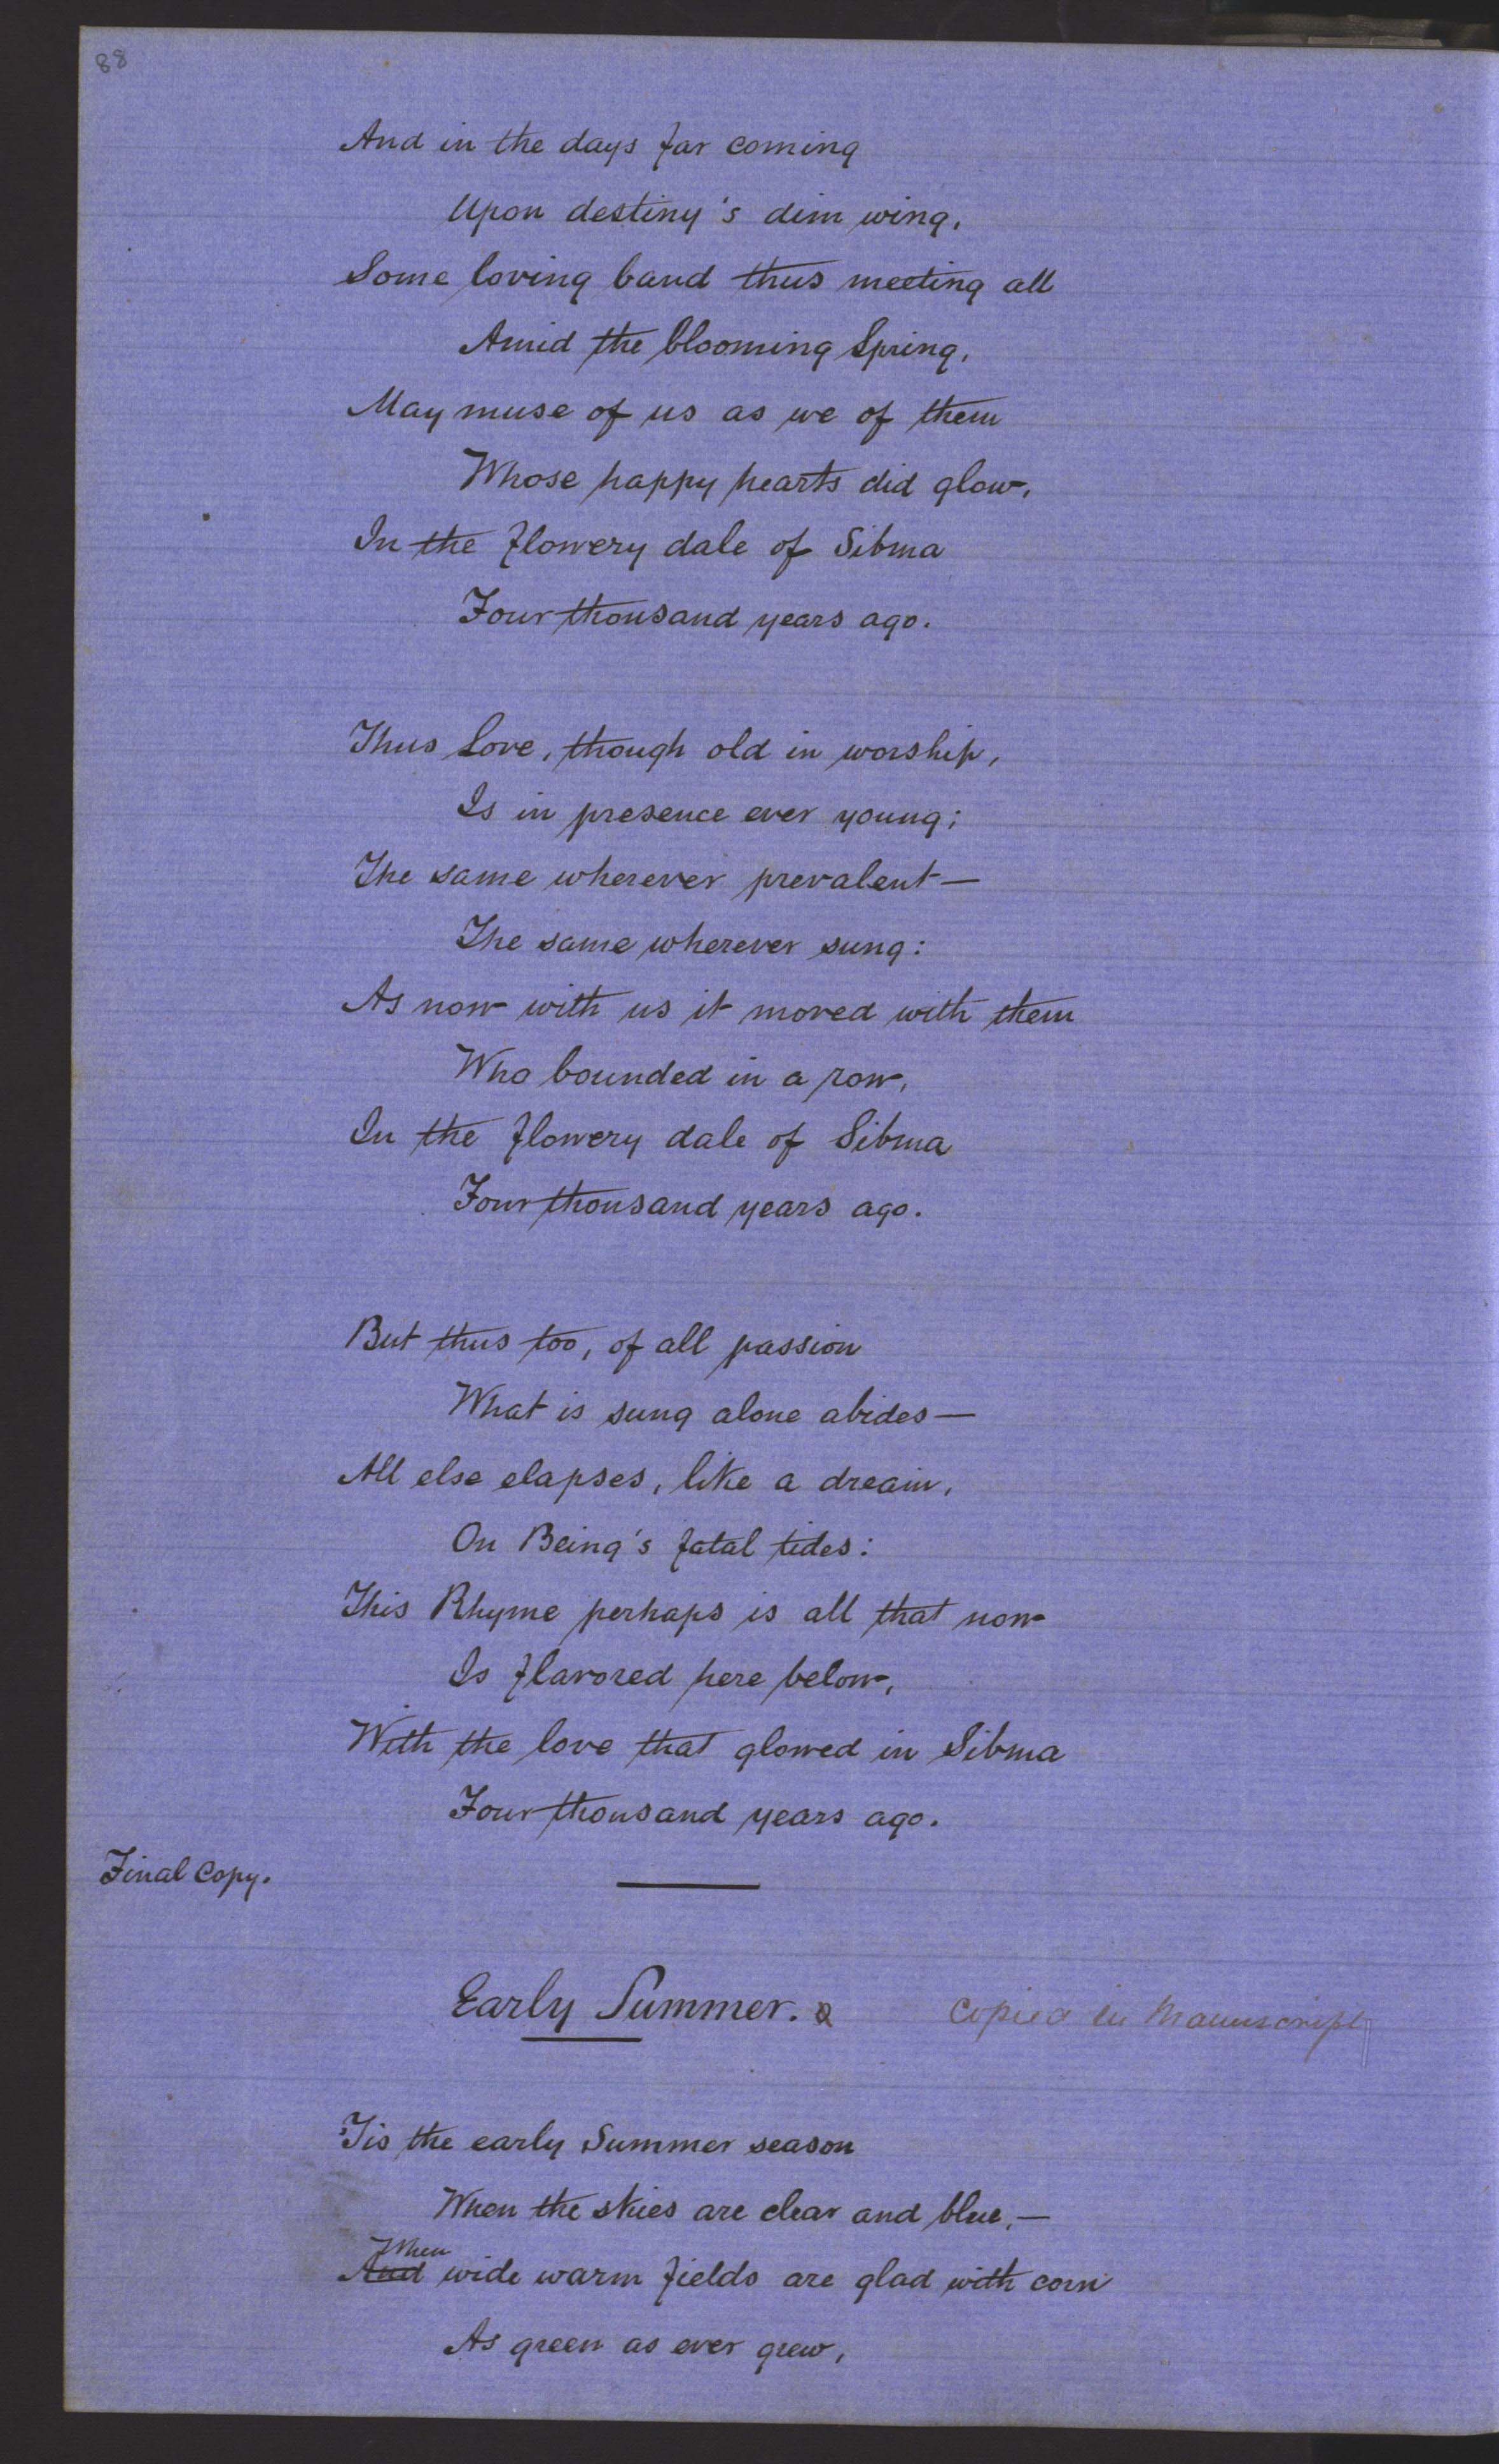 88
And in the days far coming
Upon destiny's dim wing,
Some loving band thus meeting all
Amid the blooming Spring,
May muse of us as we of them
Whose happy hearts did glow,
In the flowery dale of Sibma
Four thousand years ago.
Thus Love, though old in worship,
Is in presence ever young;
The same wherever prevalent—
The same wherever sung:
As now with us it moved with them
Who bounded in a row,
In the flowery dale of Sibma
Four thousand years ago.
But thus too, of all passion
What is sung alone abides—
All else elapses, like a dream,
On Being's fatal tides:
This Rhyme perhaps is all that now
Is flavored here below,
With the love that glowed in Sibma
Four thousand years ago.
Final Copy.
Early Summer.
Copied in Manuscript
'Tis the early Summer season
When the skies are clear and blue,—
When
And wide warm fields are glad with corn
As green as ever grew,